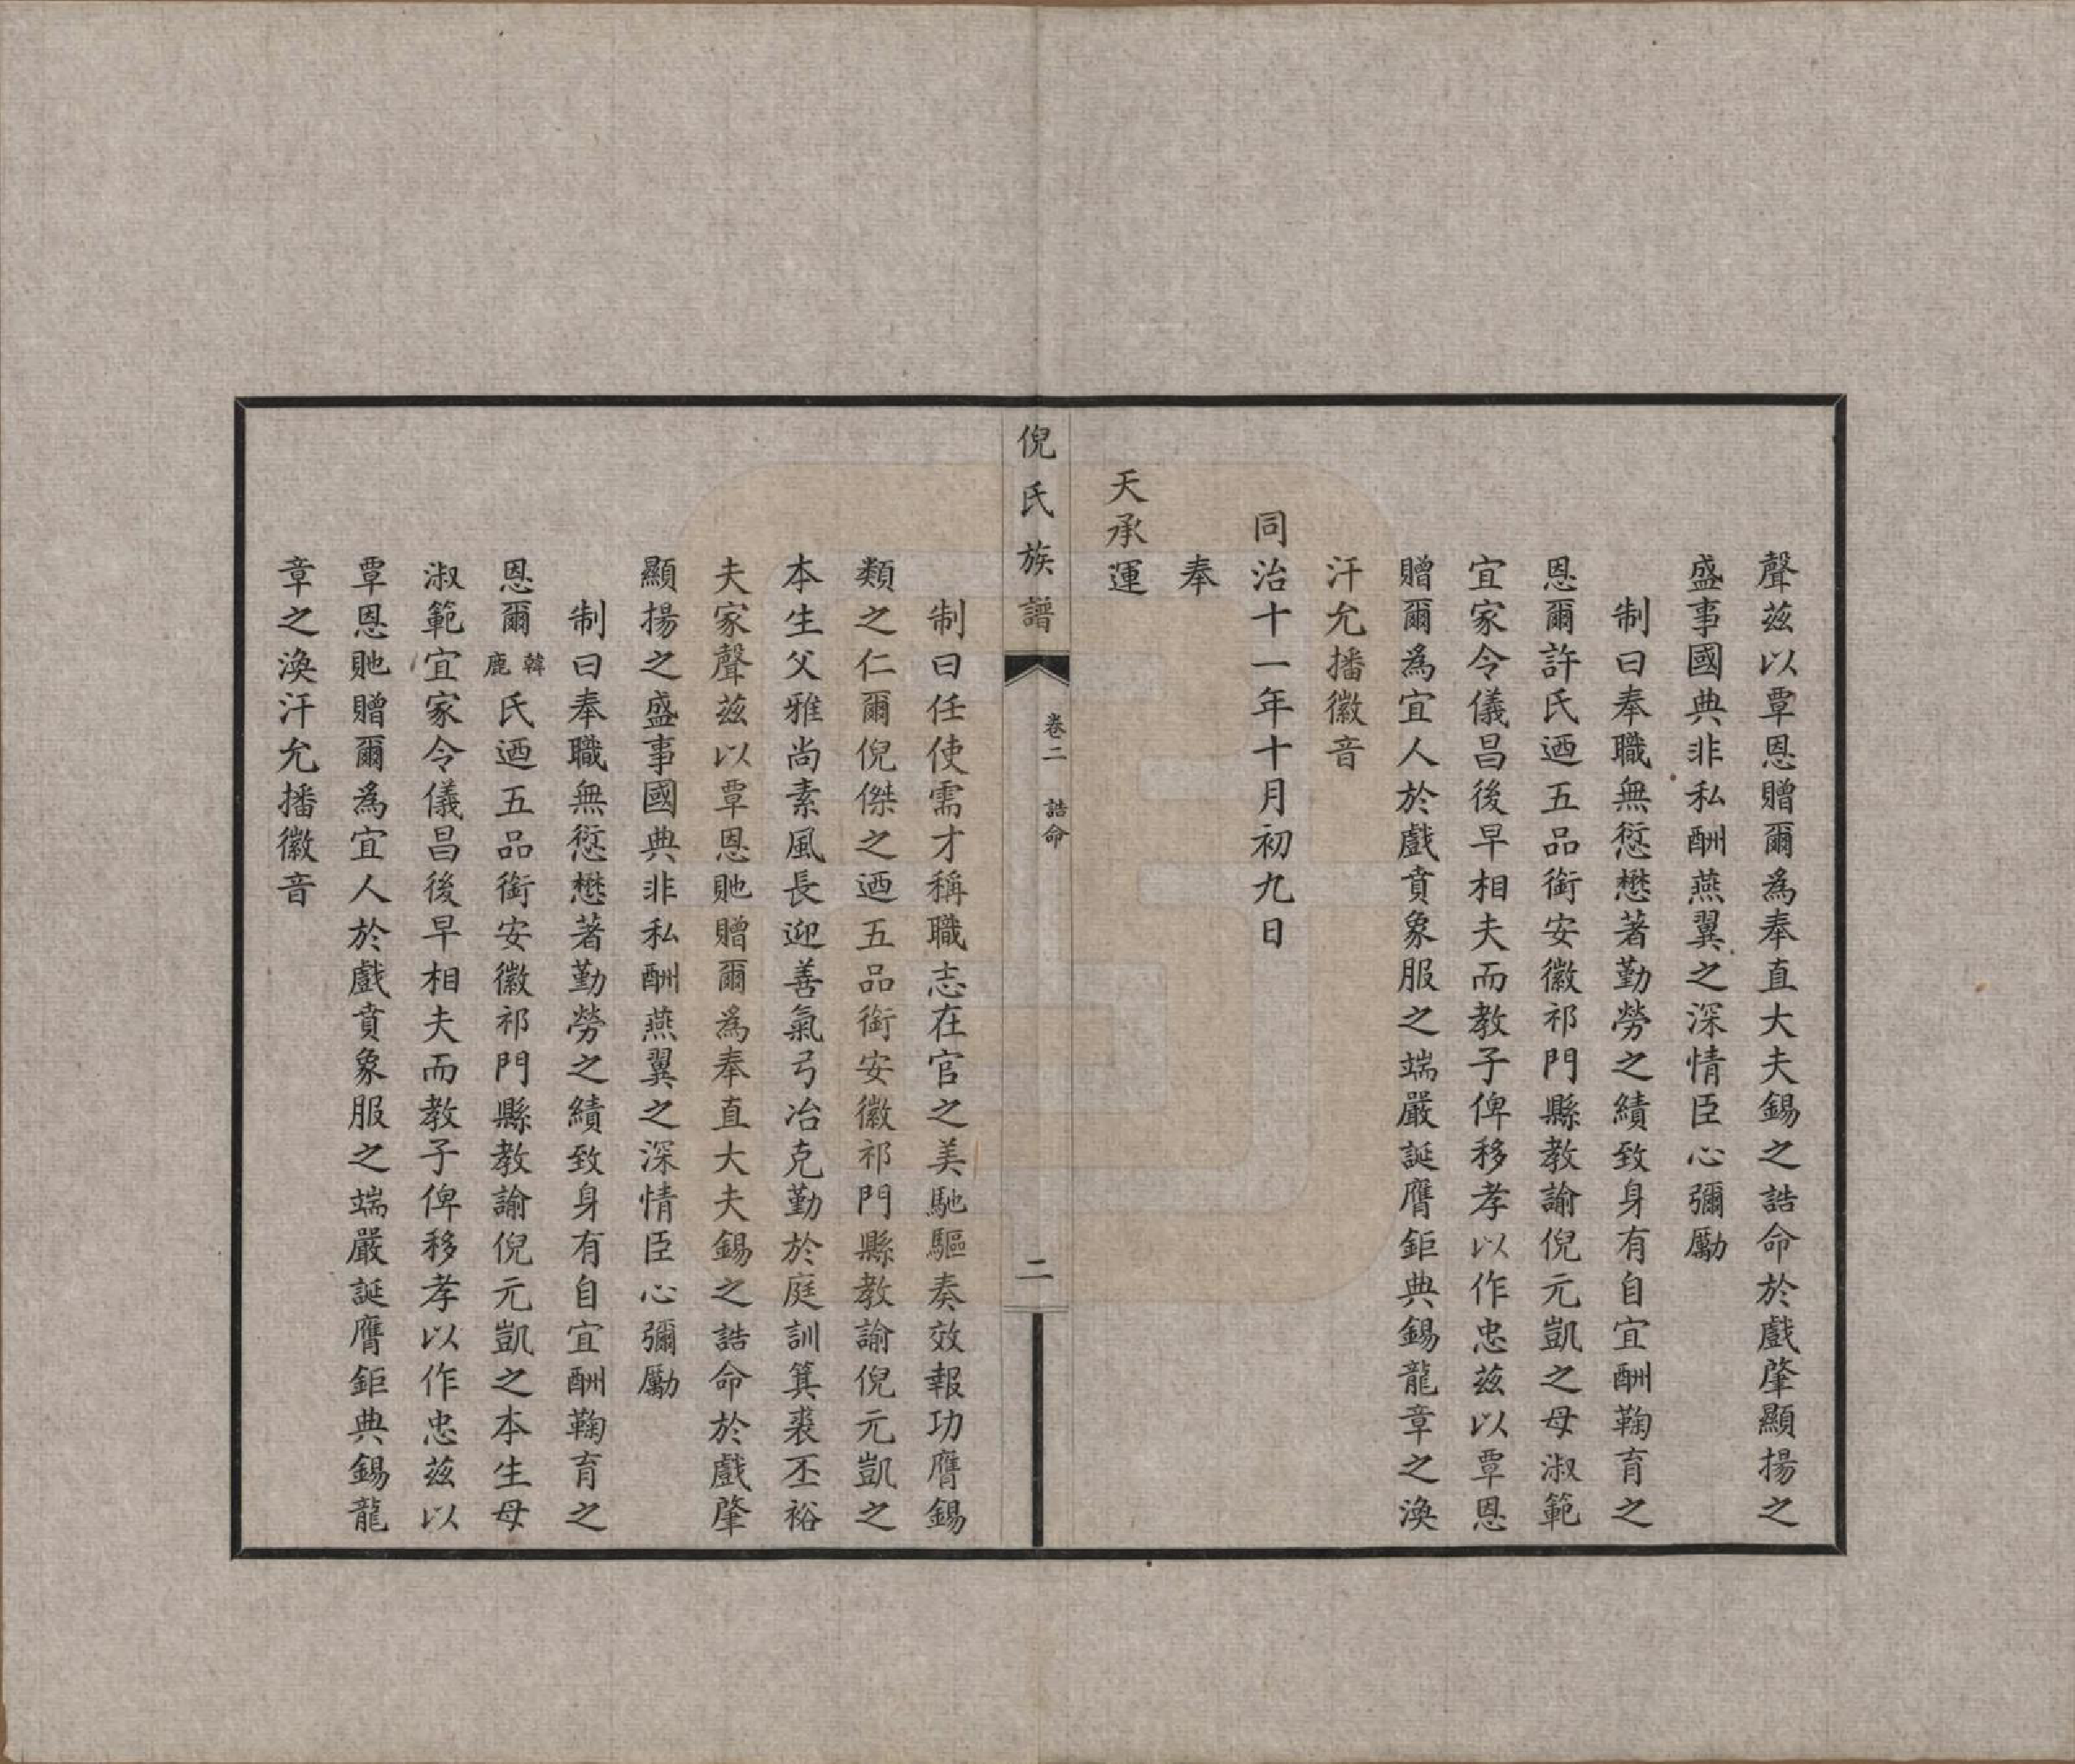 聲茲以覃恩贈爾為奉直大夫錫之誥命於戲肇顯揚之
盛事國典非私酬燕翼之深情臣心彌勵
制曰奉職無愆懋著勤勞之績致身有自宜酬鞠育之
恩爾許氏迺五品銜安徽祁門縣教諭倪元凱之母淑範
宜家令儀昌後早相夫而教子俾移孝以作忠茲以覃恩
贈爾為宜人於戲賁象服之端嚴誕膺鉅典錫龍章之渙
汗允播徽音
同治十一年十月初九日
奉
天承運
倪氏族譜
卷二 誥命
二
制曰任使需才稱職志在官之美馳驅奏效報功膺錫
類之仁爾倪傑之迺五品銜安徽祁門縣教諭倪元凱之
本生父雅尚素風長迎善氣弓冶克勤於庭訓箕裘丕裕
夫家聲茲以覃恩貤贈爾為奉直大夫錫之誥命於戲肇
顯揚之盛事國典非私酬燕翼之深情臣心彌勵
制曰奉職無愆懋著勤勞之績致身有自宜酬鞠育之
恩爾韓鹿氏迺五品銜安徽祁門縣教諭倪元凱之本生母
淑範宜家令儀昌後早相夫而教子俾移孝以作忠茲以
覃恩貤贈爾為宜人於戲賁象服之端嚴誕膺鉅典錫龍
章之渙汗允播徽音